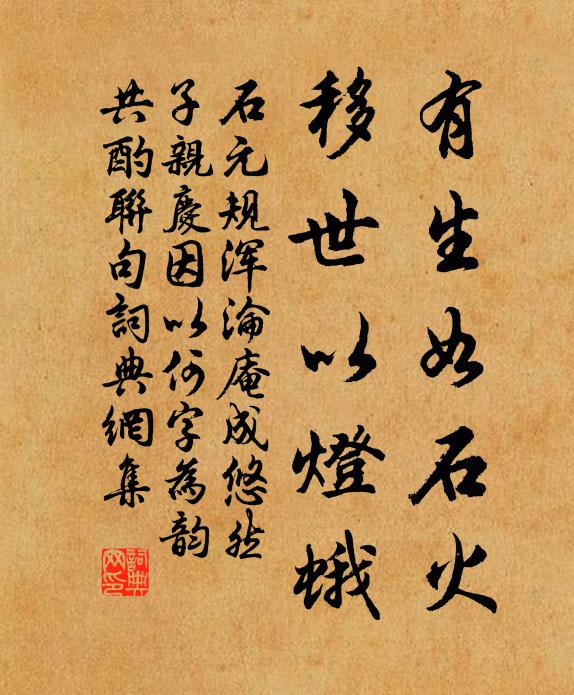 有生如石火
移世以燈蛾
石元規渾淪庵成悠然
子親慶因以何字為韵
共酌聯句詞典網集
詞典網印